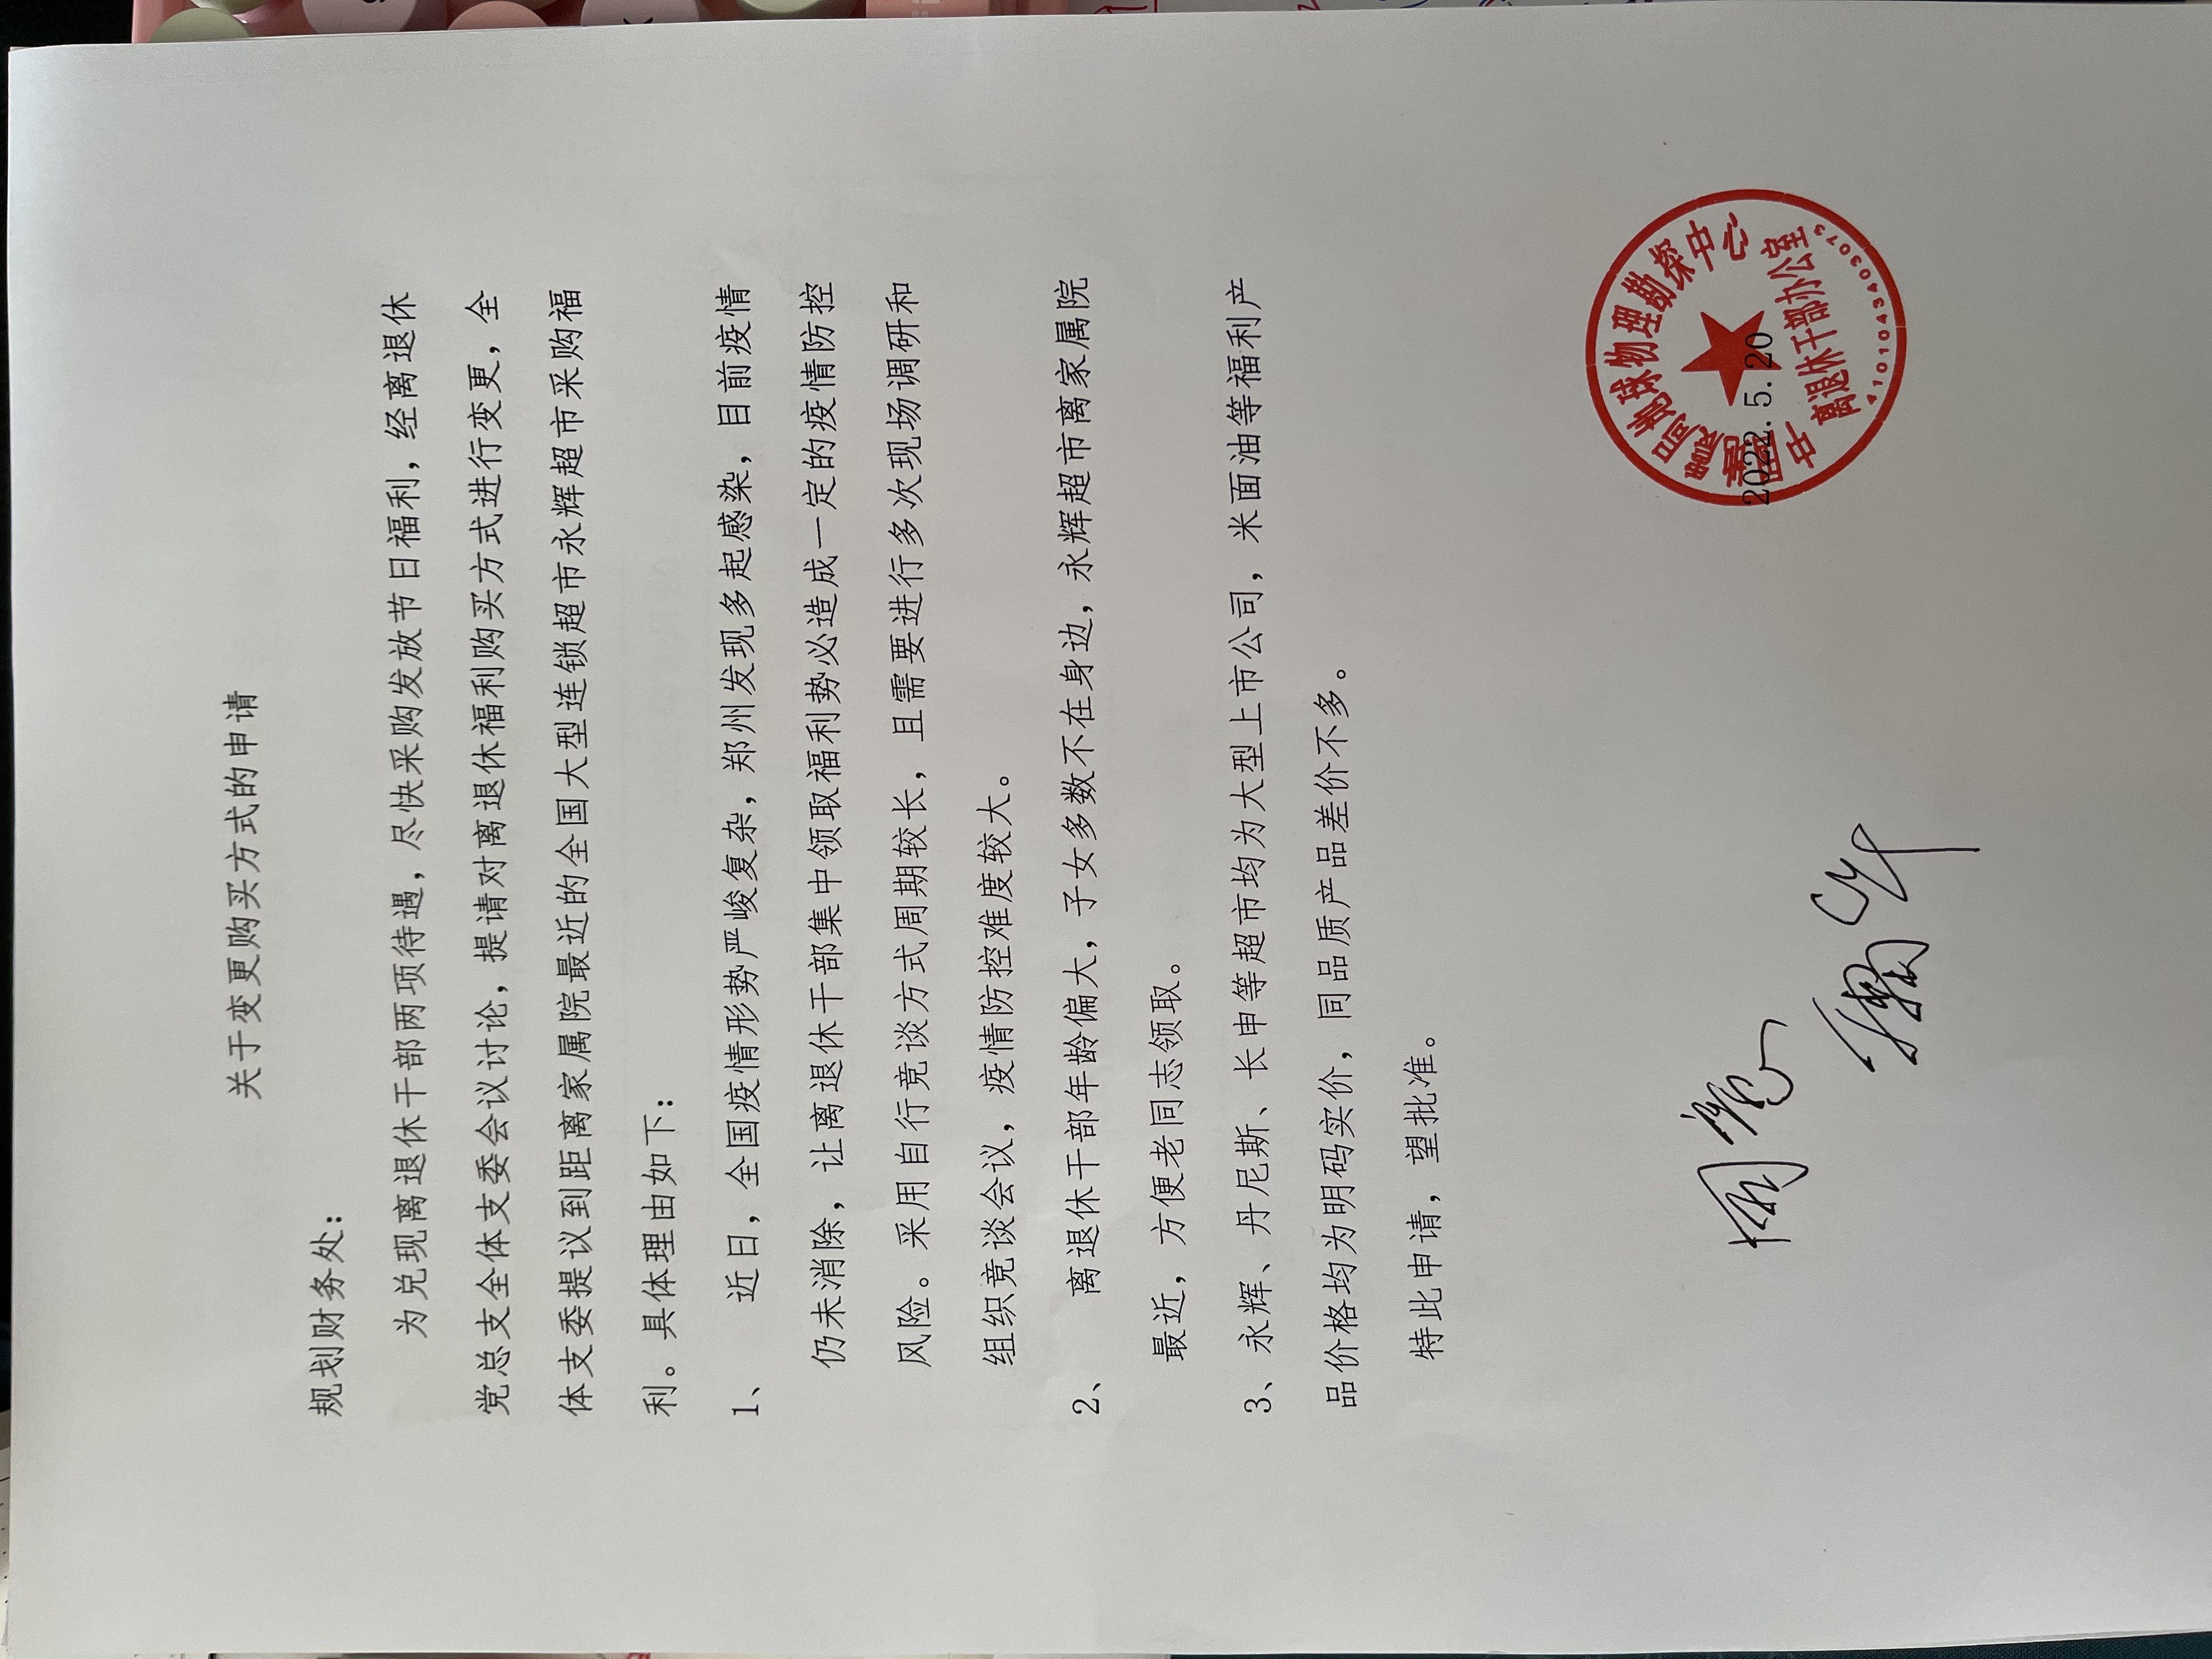 关于变更购买方式的申请
规划财务处：
为兑现离退休干部两项待遇，尽快采购发放节日福利，经离退休
党总支全体支委会议讨论，提请对离退休福利购买方式进行变更，全
体支委提议到距离家属院最近的全国大型连锁超市永辉超市采购福
利。具体理由如下：
1、 近日，全国疫情形势严峻复杂，郑州发现多起感染，目前疫情
仍未消除，让离退休干部集中领取福利势必造成一定的疫情防控
风险。采用自行竞谈方式周期较长，且需要进行多次现场调研和
组织竞谈会议，疫情防控难度较大。
2、 离退休干部年龄偏大，子女多数不在身边，永辉超市离家属院
最近，方便老同志领取。
3、永辉、丹尼斯、长申等超市均为大型上市公司，米面油等福利产
品价格均为明码实价，同品质产品差价不多。
特此申请，望批准。
中国地震局地球物理勘探中心
离退休干部办公室
4101043403073
2022.5.20